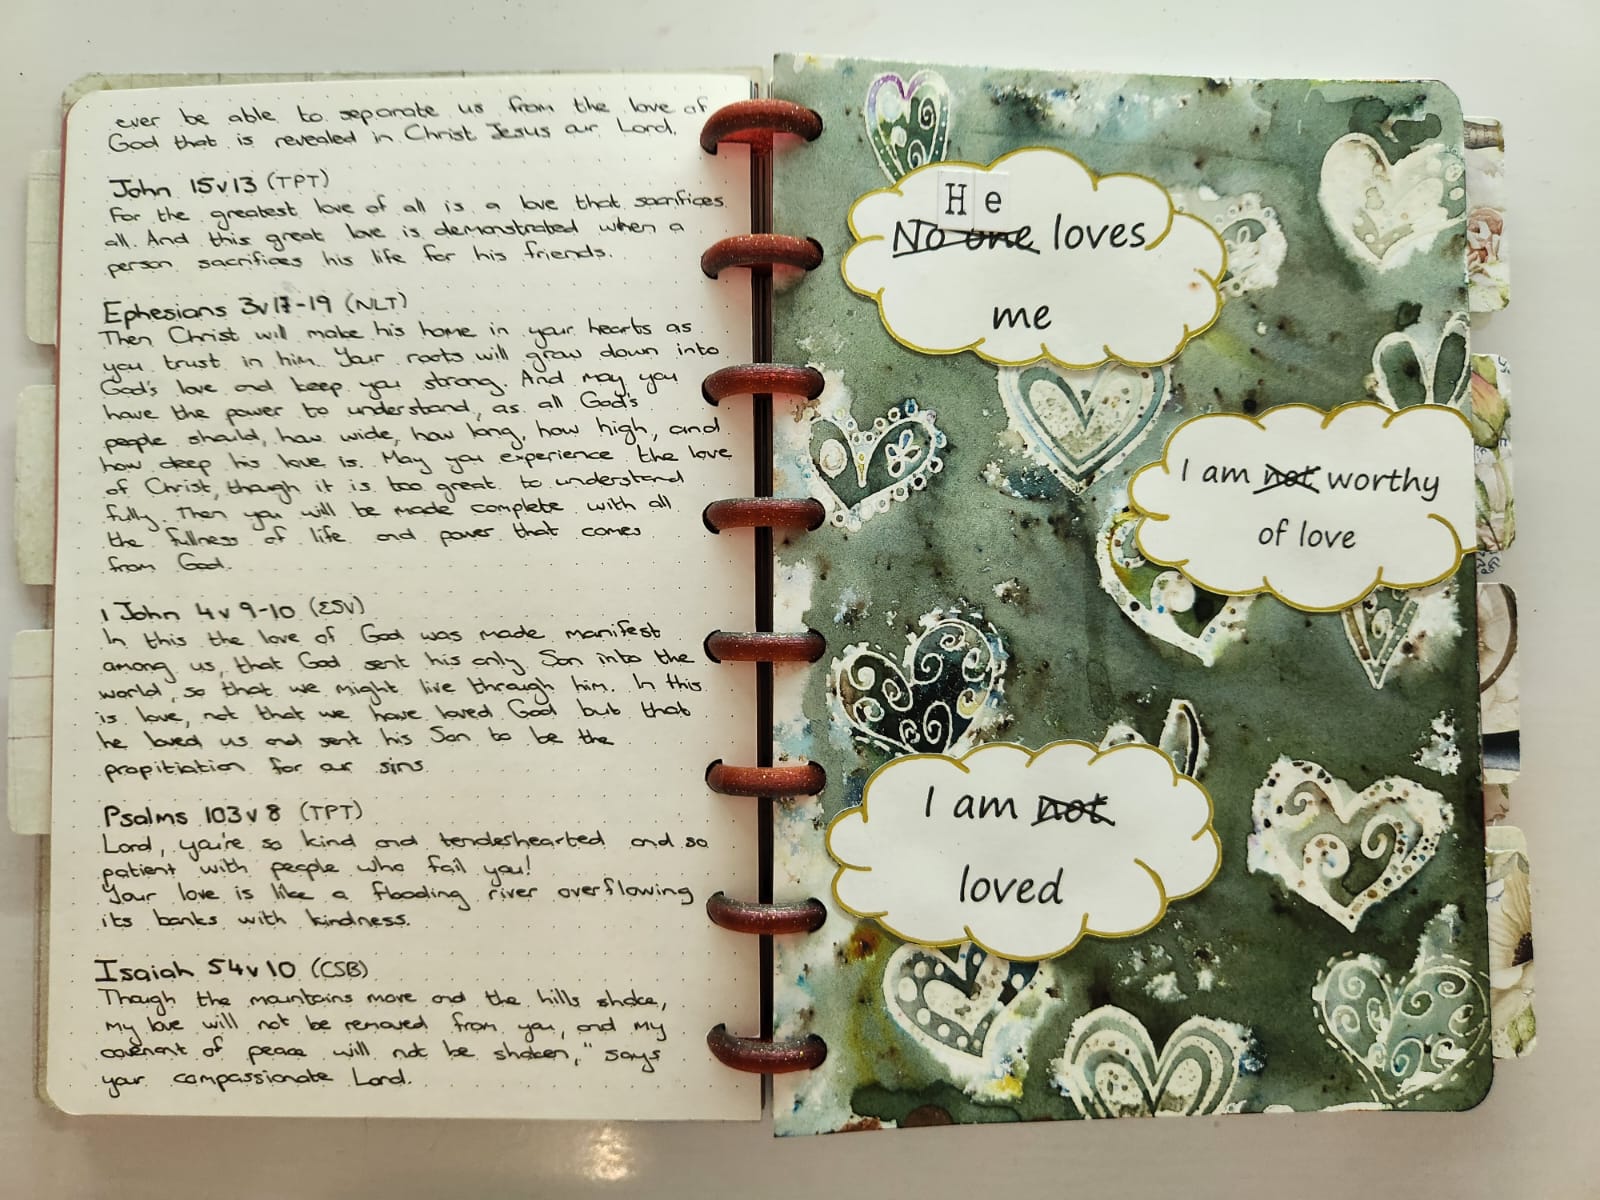 ever be able to separate us from the love of
God that is revealed in Christ Jesus our Lord.
John 15v13 (TPT)
For the greatest love of all is a love that sacrifices
all. And this great love is demonstrated when a
person sacrifices his life for his friends.
Ephesians 3v17-19 (NLT)
Then Christ will make his home in your hearts as
you trust in him. Your roots will grow down into
God's love and keep you strong. And may you
have the power to understand, as all God's
people should, how wide, how long, how high, and
how deep his love is. May you experience the love
of Christ, though it is too great to understand
fully. Then you will be made complete with all
the fullness of life and power that comes
from God.
1 John 4v9-10 (ESV)
In this the love of God was made manifest
among us, that God sent his only Son into the
world, so that we might live through him. In this
is love, not that we have loved God but that
he loved us and sent his Son to be the
propitiation for our sins
Psalms 103v8 (TPT)
Lord, you're so kind and tenderhearted and so
patient with people who fail you!
Your love is like a flooding river overflowing
its banks with kindness.
Isaiah 54v10 (CSB)
Though the mountains move and the hills shake,
my love will not be removed from you, and my
covenant of peace will not be shaken," says
your compassionate Lord.
He
No one loves
me
I am not worthy
of love
I am not
loved